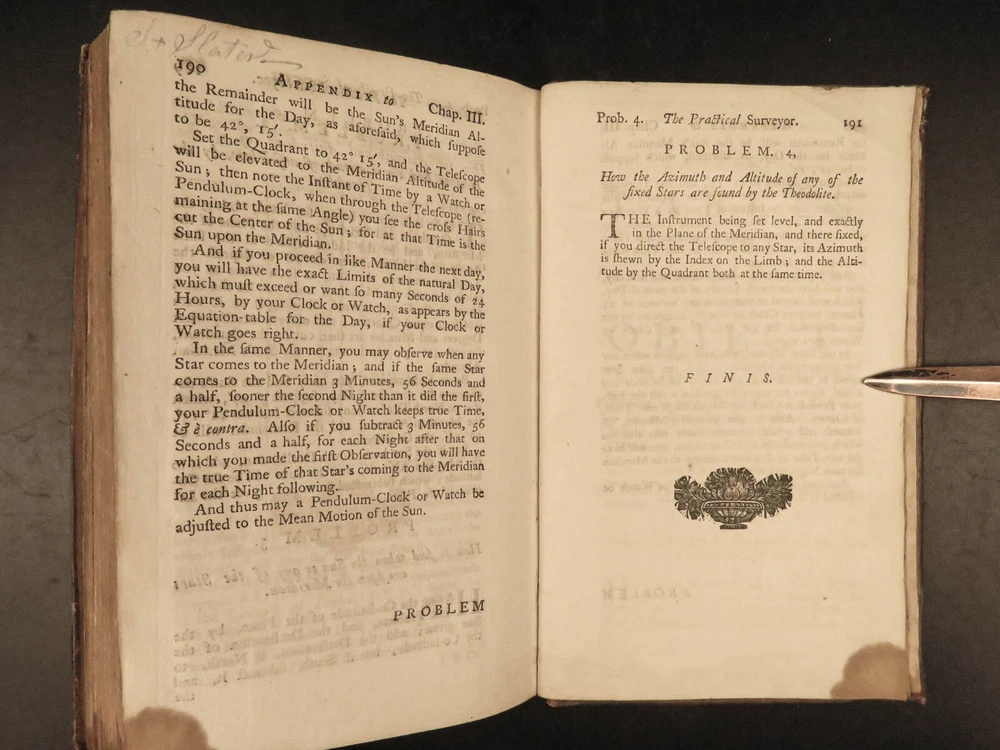 190 APPENDIX to Chap. III.
the Remainder will be the Sun's Meridian Al-
titude for the Day, as aforeſaid, which ſuppoſe
to be 42°, 15′.
Set the Quadrant to 42° 15′, and the Teleſcope
will be elevated to the Meridian Altitude of the
Sun; then note the Inſtant of Time by a Watch or
Pendulum-Clock, when through the Teleſcope (re-
maining at the ſame Angle) you ſee the croſs Hairs
cut the Center of the Sun; for at that Time is the
Sun upon the Meridian.
And if you proceed in like Manner the next day,
you will have the exact Limits of the natural Day,
which muſt exceed or want ſo many Seconds of 24
Hours, by your Clock or Watch, as appears by the
Equation-table for the Day, if your Clock or
Watch goes right.
In the ſame Manner, you may obſerve when any
Star comes to the Meridian; and if the ſame Star
comes to the Meridian 3 Minutes, 56 Seconds and
a half, ſooner the ſecond Night than it did the firſt,
your Pendulum-Clock or Watch keeps true Time,
& è contra. Alſo if you ſubtract 3 Minutes, 56
Seconds and a half, for each Night after that on
which you made the firſt Obſervation, you will have
the true Time of that Star's coming to the Meridian
for each Night following.
And thus may a Pendulum-Clock or Watch be
adjuſted to the Mean Motion of the Sun.
PROBLEM
Prob. 4. The Practical Surveyor. 191
PROBLEM. 4,
How the Azimuth and Altitude of any of the
fixed Stars are found by the Theodolite.
THE Inſtrument being ſet level, and exactly
in the Plane of the Meridian, and there fixed,
if you direct the Teleſcope to any Star, its Azimuth
is ſhewn by the Index on the Limb; and the Alti-
tude by the Quadrant both at the ſame time.
FINIS.